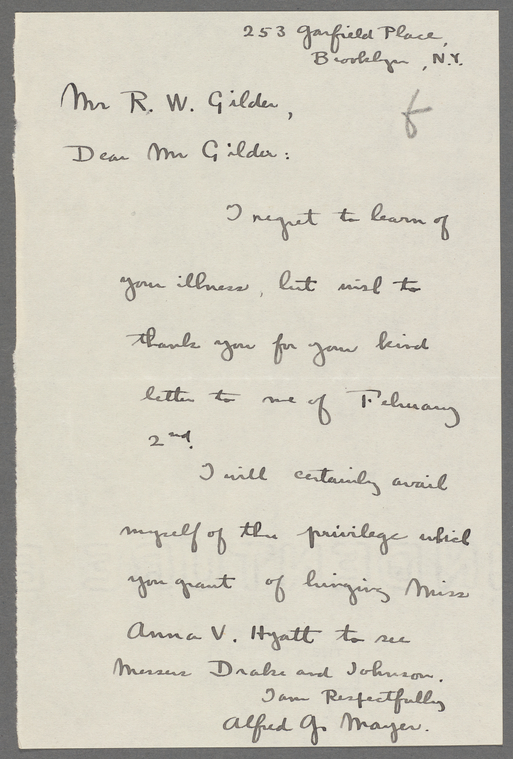 253 Garfield Place,
Brooklyn, N.Y.
Mr R. W. Gilder,
Dear Mr Gilder:
I regret to learn of
your illness, but wish to
thank you for your kind
letter to me of February
2nd.
I will certainly avail
myself of the privilege which
you grant of bringing Miss
Anna V. Hyatt to see
Messrs Drake and Johnson.
I am Respectfully
Alfred G. Mayer.